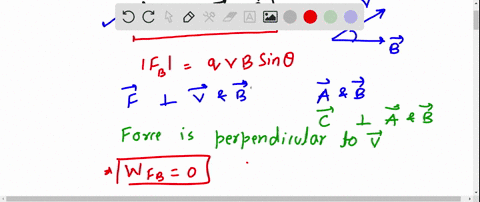 V
B⃗
|F_B| = qvB Sinθ
F⃗ ⊥ V⃗ & B⃗ A⃗ & B⃗
C⃗ ⊥ A⃗ & B⃗
Force is perpendicular to V⃗
* W_{FB} = 0